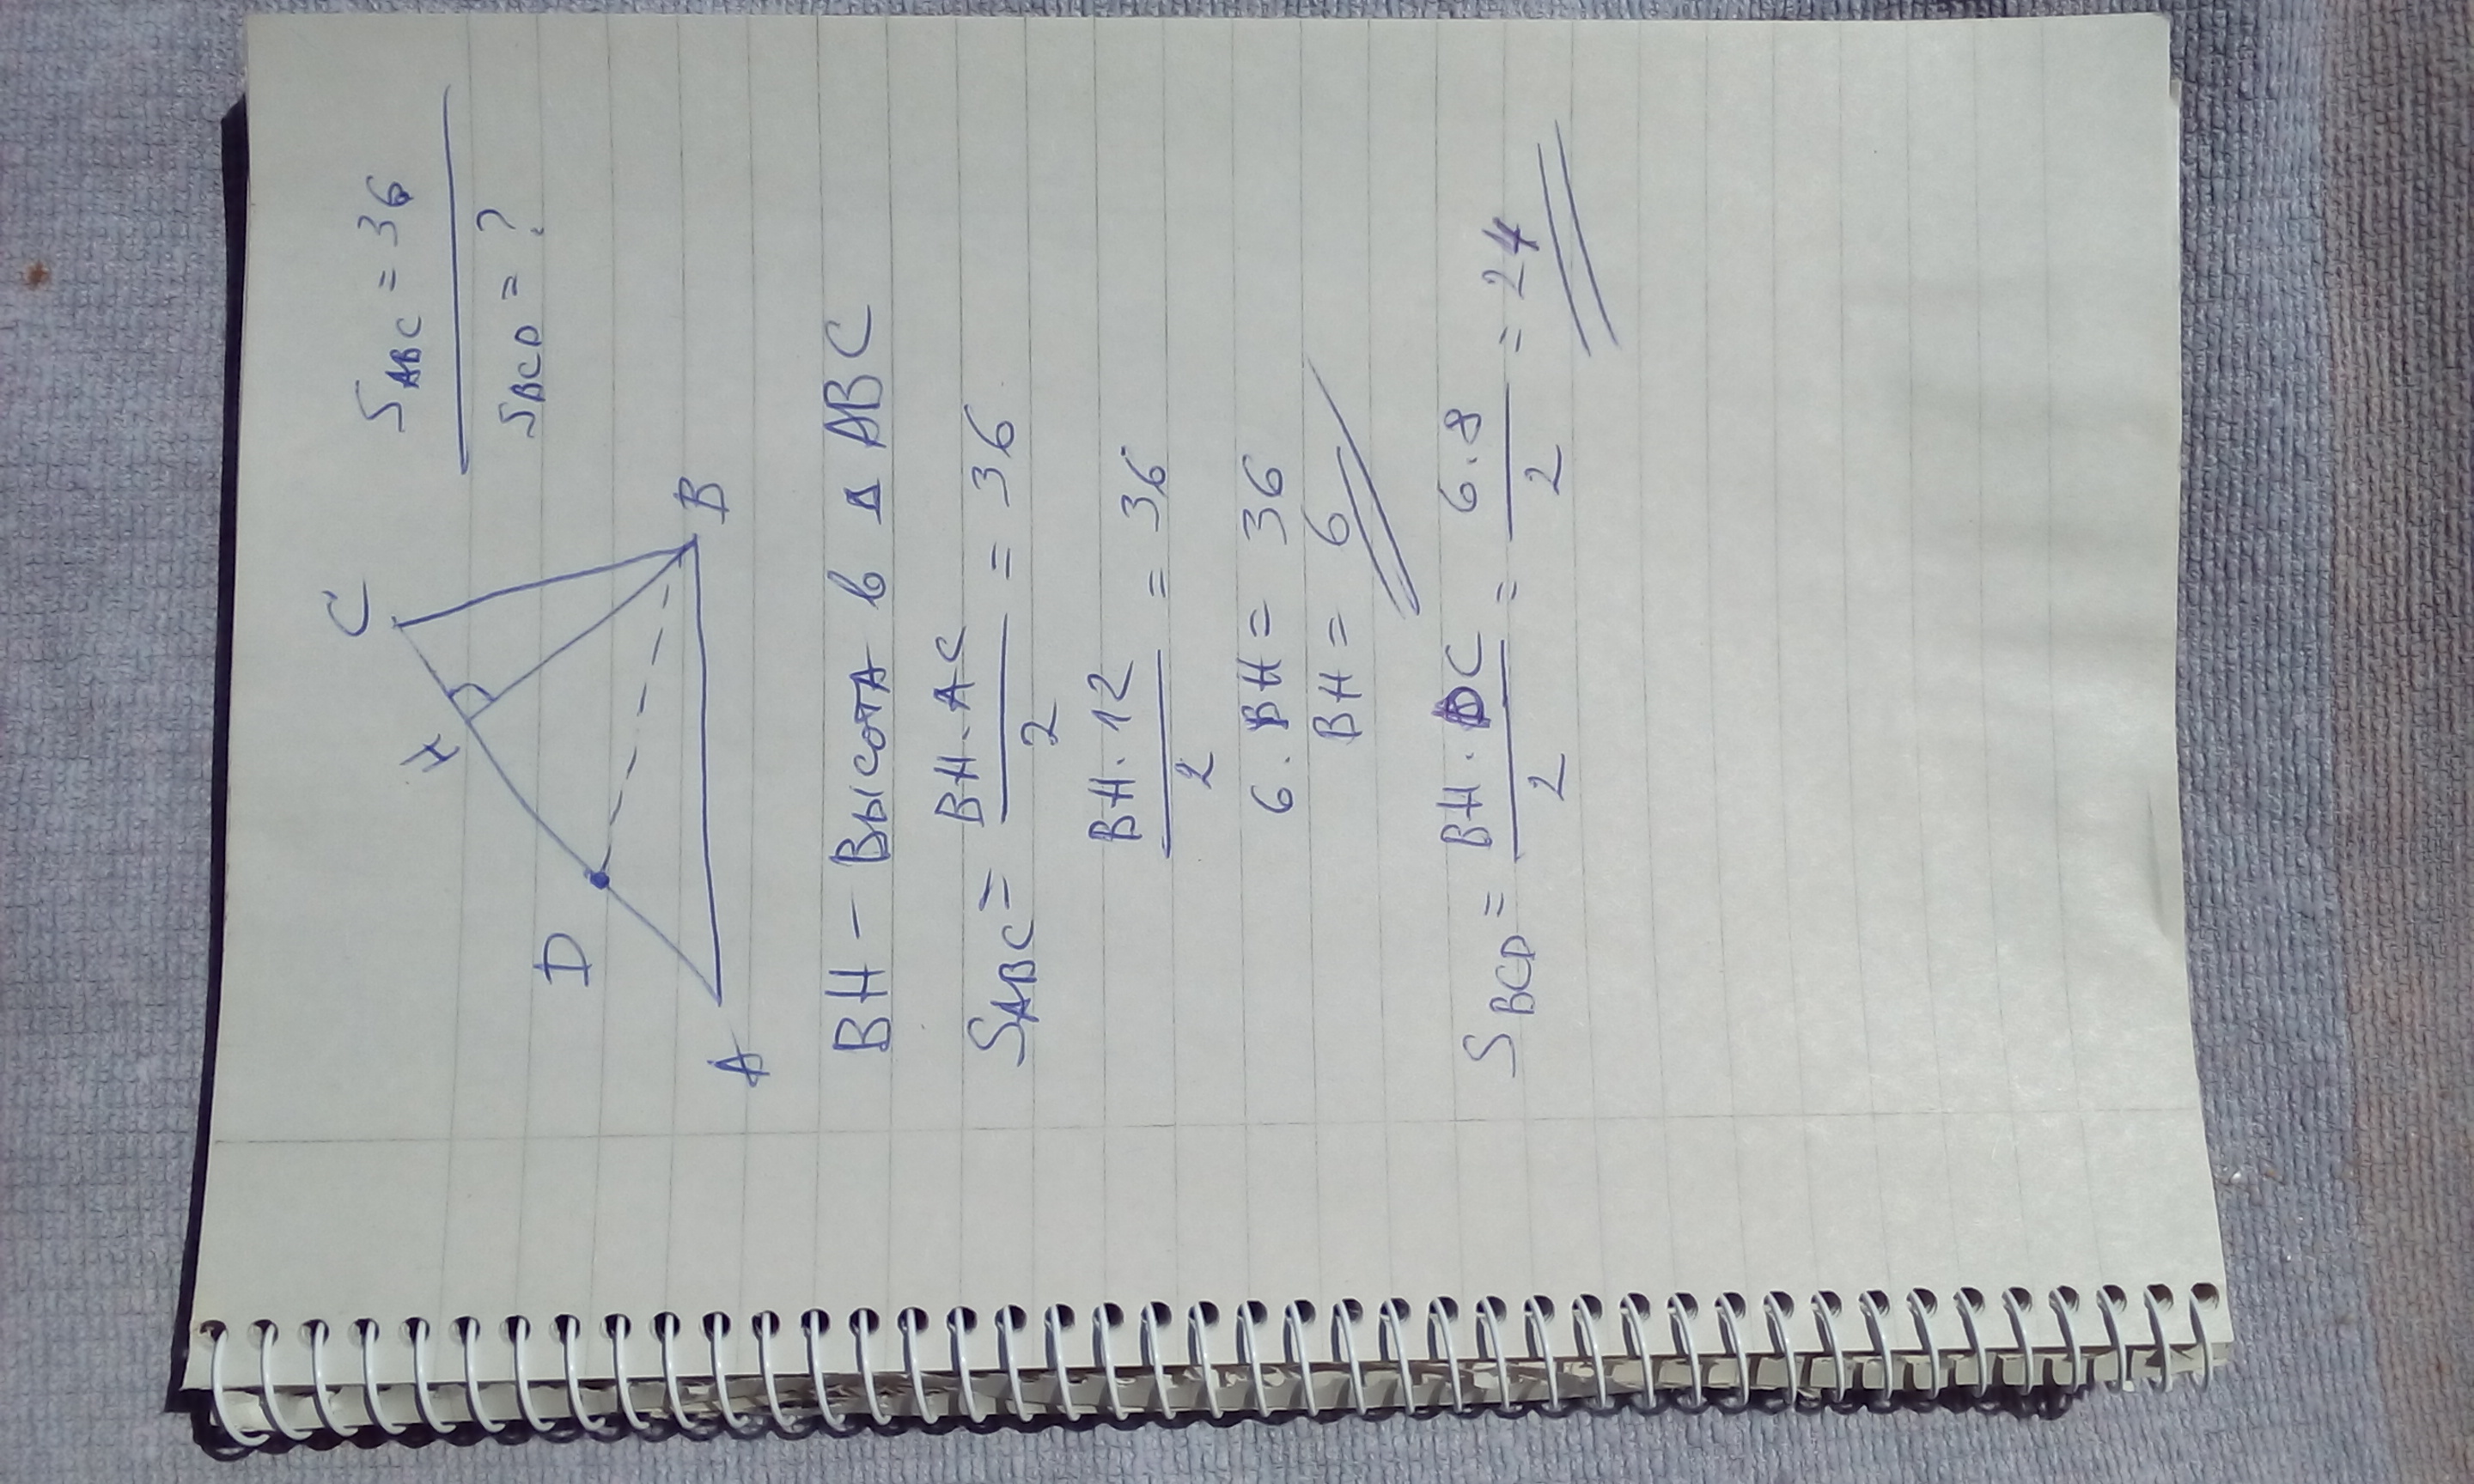 C
S ABC = 36
H
D
B
A
S BCD = ?
BH – Высота в Δ ABC
S ABC = BH · AC / 2 = 36
BH · 12 / 2 = 36
6 · BH = 36
BH = 6
S BCD = BH · DC / 2 = 6 · 8 / 2 = 24